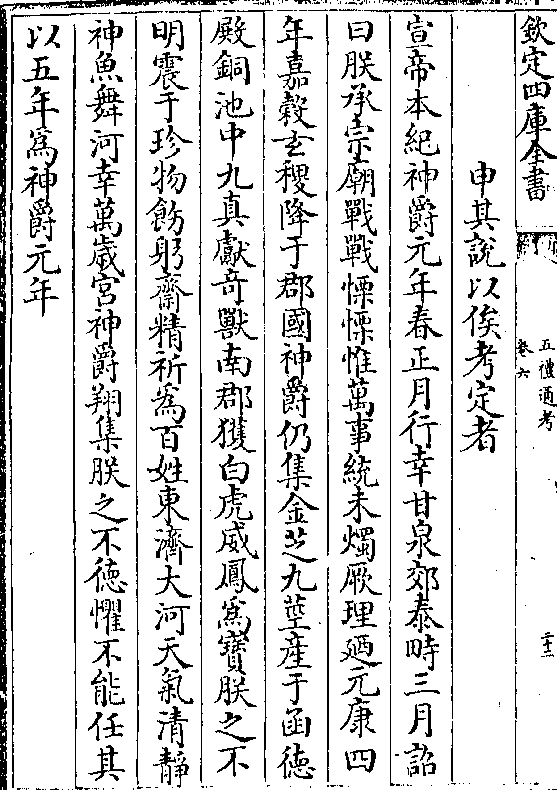 欽定四庫全書
五禮通考
卷六
二十二
申其說以俟考定者
宣帝本紀神爵元年春正月行幸甘泉郊泰畤三月詔
曰朕承宗廟戰戰慄慄惟萬事統未燭厥理廼元康四
年嘉穀玄稷降于郡國神爵仍集金芝九莖産于函德
殿銅池中九真獻奇獸南郡獲白虎威鳳為寶朕之不
明震于珍物飭躬齋精祈為百姓東濟大河天氣清靜
神魚舞河幸萬歲宮神爵翔集朕之不德懼不能任其
以五年為神爵元年